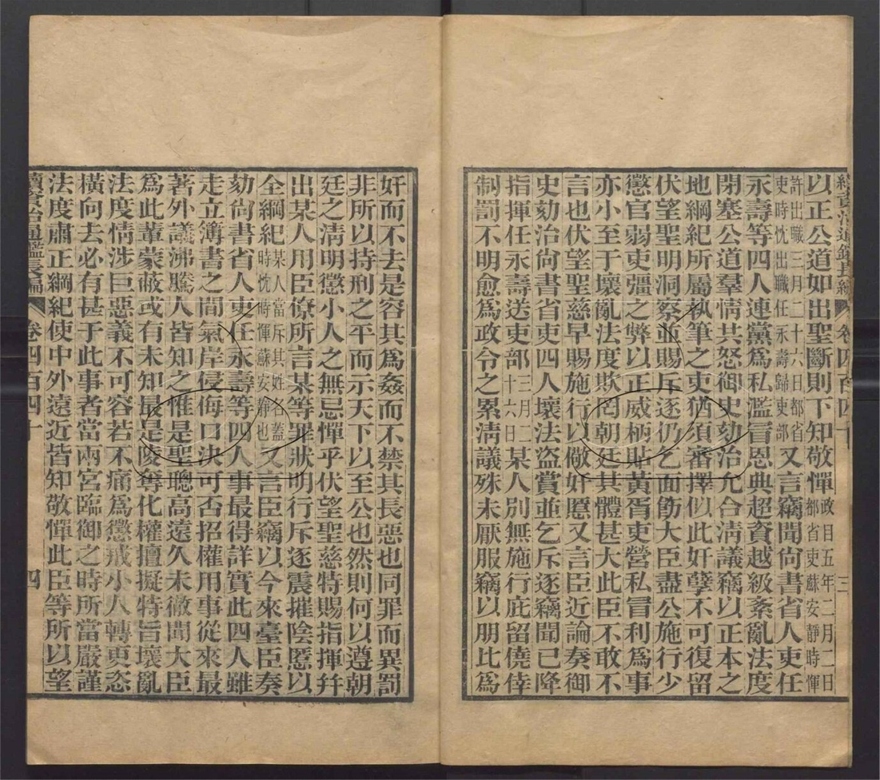 續資治通鑑長編 卷四百四十 三
以正公道如出聖斷則下知敬憚政目五年二月二日都省吏蘇安靜時惲
許出職三月二十六日都省吏時忱出職任永壽歸吏部又言竊聞尚書省人吏任
永壽等四人連黨爲私濫冒恩典超資越級紊亂法度
閉塞公道羣情共怒御史劾治允合淸議竊以正本之
地綱紀所屬執筆之吏猶須審擇似此奸孽不可復留
伏望聖明洞察並賜斥逐仍乞面飭大臣盡公施行少
懲官弱吏彊之弊以正威柄貼黃胥吏營私冒利爲事
亦小至于壞亂法度欺罔朝廷其體甚大此臣不敢不
言也伏望聖慈早賜施行以儆奸慝又言臣近論奏御
史劾治尚書省吏四人壞法盜賞並乞斥逐竊聞已降
指揮任永壽送吏部三月二十六日某人別無施行庇留僥倖
制罰不明愈爲政令之累淸議殊未厭服竊以朋比爲
奸而不去是容其爲姦而不禁其長惡也同罪而異罰
非所以持刑之平而示天下以至公也然則何以遵朝
廷之淸明懲小人之無忌憚乎伏望聖慈特賜指揮幷
出某人用臣僚所言某等罪狀明行斥逐震摧陰慝以
全綱紀某人當斥其姓名蓋時忱時惲蘇安靜也又言臣竊以今來臺臣奏
劾尚書省人吏任永壽等四人事最得詳實此四人雖
走立簿書之間氣岸侵侮口決可否招權用事從來最
著外議沸騰人皆知之惟是聖聰高遠久未徹聞大臣
爲此輩蒙蔽或有未知最是陵奪化權擅擬特旨壞亂
法度情涉巨惡義不可容若不痛爲懲戒小人轉更恣
橫向去必有甚于此事者當兩宮臨御之時所當嚴謹
法度肅正綱紀使中外遠近皆知敬憚此臣等所以望
續資治通鑑長編 卷四百四十 四